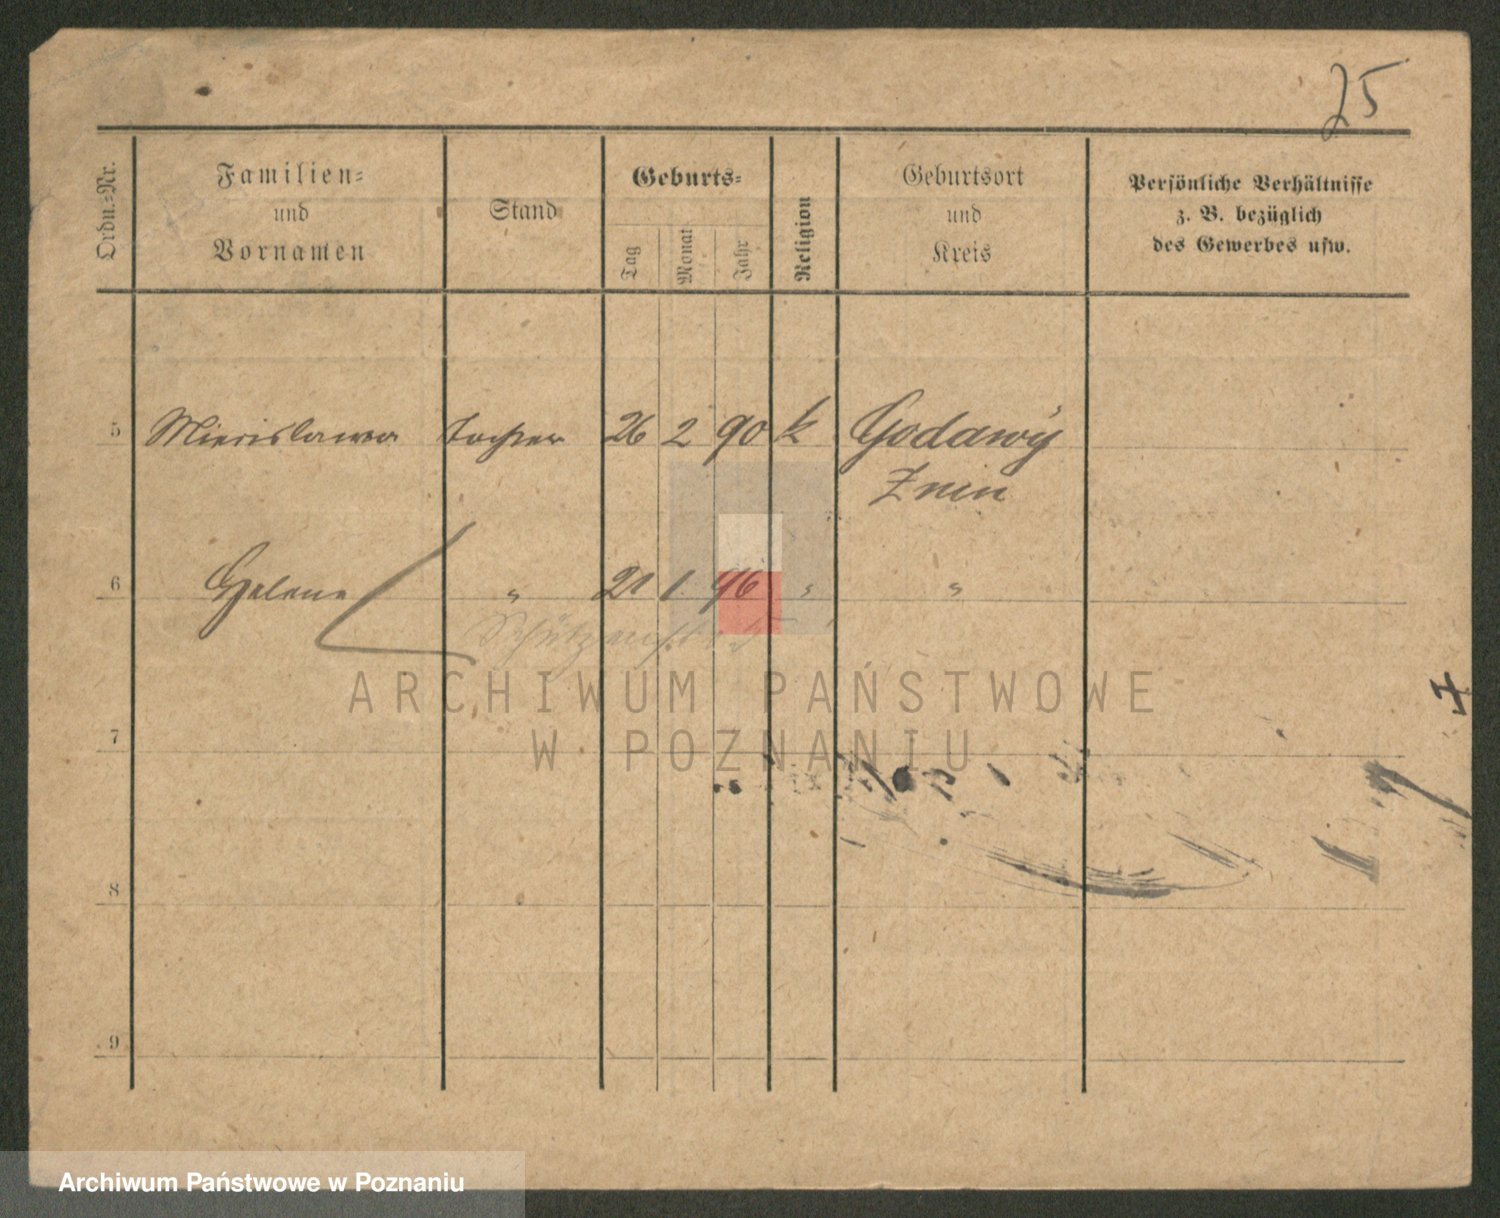 25
Ordn.-Nr.
Familien-
und
Vornamen
Stand
Geburts-
Tag
Monat
Jahr
Religion
Geburtsort
und
Kreis
Persönliche Verhältnisse
z. B. bezüglich
des Gewerbes usw.
5 Mierislawa Tochter 26 2 90 k Godawy
Znin
6 Helene " 21 1. 96 " "
ARCHIWUM PAŃSTWOWE
W POZNANIU
7
8
9
Archiwum Państwowe w Poznaniu